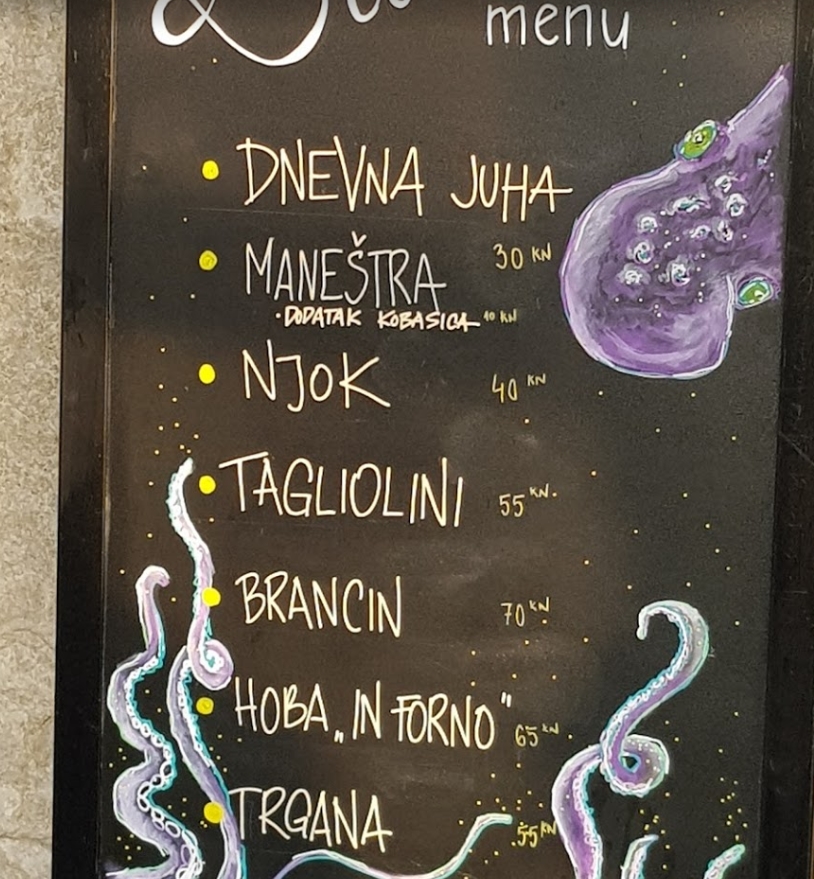 menu
DNEVNA JUHA
MANEŠTRA 30 KN
• DODATAK KOBASICA 10 KN
NJOK 40 KN
TAGLIOLINI 55 KN.
BRANCIN 70 KN.
HOBA „IN FORNO" 65 KN
TRGANA 55 KN